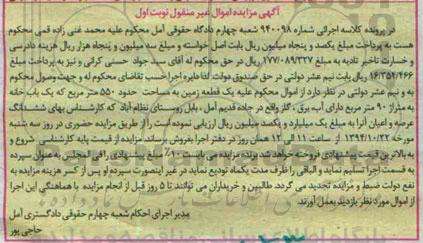 آگهی مزایده اموال غیر منقول نوبت اول
در پرونده کلاسه اجرائی شماره ۹۴۰۰۹۸ شعبه چهارم دادگاه حقوقی آمل محکوم علیه محمد غنی زاده قمی محکوم
هست به پرداخت مبلغ یکصد و پنجاه میلیون ریال بابت اصل خواسته و مبلغ سه میلیون و پنجاه هزار ریال هزینه دادرسی
و خسارت تاخیر تادیه به مبلغ ۱۷۷/۰۸۹/۳۲۷ ریال در حق محکوم له آقای سید جواد حسنی کرانی و نیز به پرداخت مبلغ
۱۶/۳۵۴/۴۶۶ ریال بابت نیم عشر دولتی در حق صندوق دولت لذا دایره اجرا حسب تقاضای محکوم له و جهت وصول محکوم
به و نیم عشر دولتی در نظر دارد از اموال محکوم علیه یک قطعه زمین به مساحت حدود ۵۵۰ متر مربع که یک باب خانه
به متراژ ۹۰ متر مربع دارای آب برق، گاز واقع در جاده قدیم آمل، بابل روستای نظام آباد که کارشناس بهای ششدانگ
عرصه و اعیان آنرا به مبلغ یک میلیارد و یکصد میلیون ریال ارزیابی نموده است را از طریق مزایده حضوری در روز سه شنبه
مورخه ۱۳۹۴/۱۰/۲۲ از ساعت ۱۱ الی ۱۲ همان روز در دفتر اجرا بفروش برساند مزایده از قیمت پایه کارشناسی شروع و
به بالاترین قیمت پیشنهادی فروخته خواهد شد برنده مزایده می بایست ۱۰٪ مبلغ پیشنهادی را فی المجلس به عنوان سپرده
به قسمت اجرا تسلیم نماید و الباقی را ظرف مدت یکماه تودیع نماید در غیر اینصورت سپرده او پس از کسر هزینه مزایده به
نفع دولت ضبط و مزایده تجدید می گردد. طالبین و خریداران می توانند تا ۵ روز قبل از انجام مزایده با هماهنگی این اجرا
از اموال مورد نظر بازدید بعمل آورند.
مدیر اجرای احکام شعبه چهارم حقوقی دادگستری آمل
حاجی پور